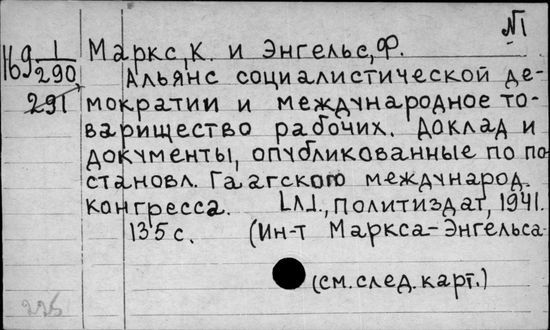 №1
169 1/290 Маркс, К. и Энгельс, Ф.
291 Альянс социалистической де-
мократии и международное то-
варищество рабочих. Доклад и
документы, опубликованные по по-
становл. Гаагского международ.
конгресса. [М.], Политиздат, 1941.
135 с. (Ин-т Маркса-Энгельса-
(см. след. карт.)
226